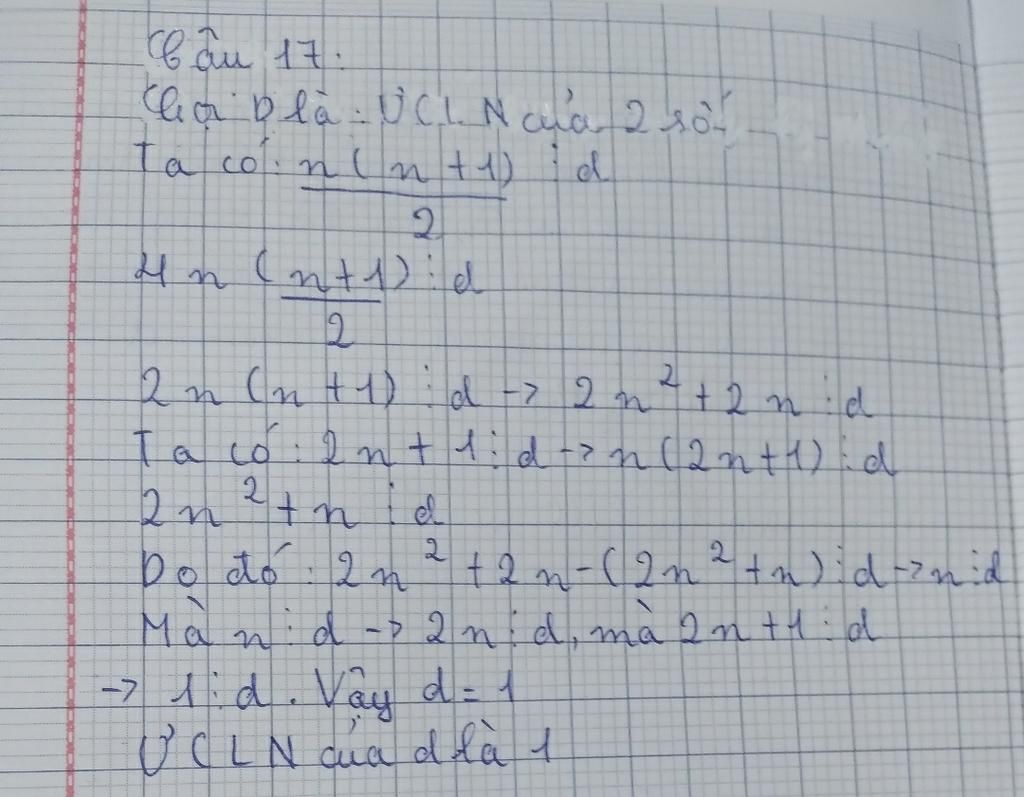 Câu 17:
Gọi D là: ƯCLN của 2 số
Ta có: n(n+1)/2 ⋮ d
4n(n+1)/2 ⋮ d
2n(n+1) ⋮ d -> 2n² + 2n ⋮ d
Ta có: 2n + 1 ⋮ d -> n(2n+1) ⋮ d
2n² + n ⋮ d
Do đó: 2n² + 2n - (2n² + n) ⋮ d -> n ⋮ d
Mà n ⋮ d -> 2n ⋮ d, mà 2n + 1 ⋮ d
-> 1 ⋮ d. Vậy d = 1
ƯCLN của d là 1